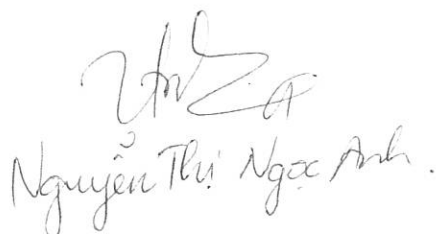 Nguyễn Thị Ngọc Anh.